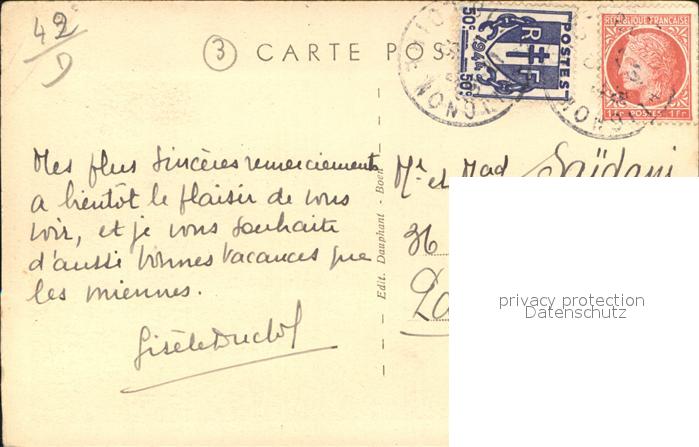 42
D
3
CARTE POS
RF
1944
POSTES
50c 50c
REPUBLIQUE FRANÇAISE
POSTES 1Fr
Mes plus sincères remerciements
a bientôt le plaisir de vous
voir, et je vous souhaite
d'aussi bonnes vacances que
les miennes.
Edit. Dauphant - Boen
Mr et Mad Saïdani
36
privacy protection
Datenschutz